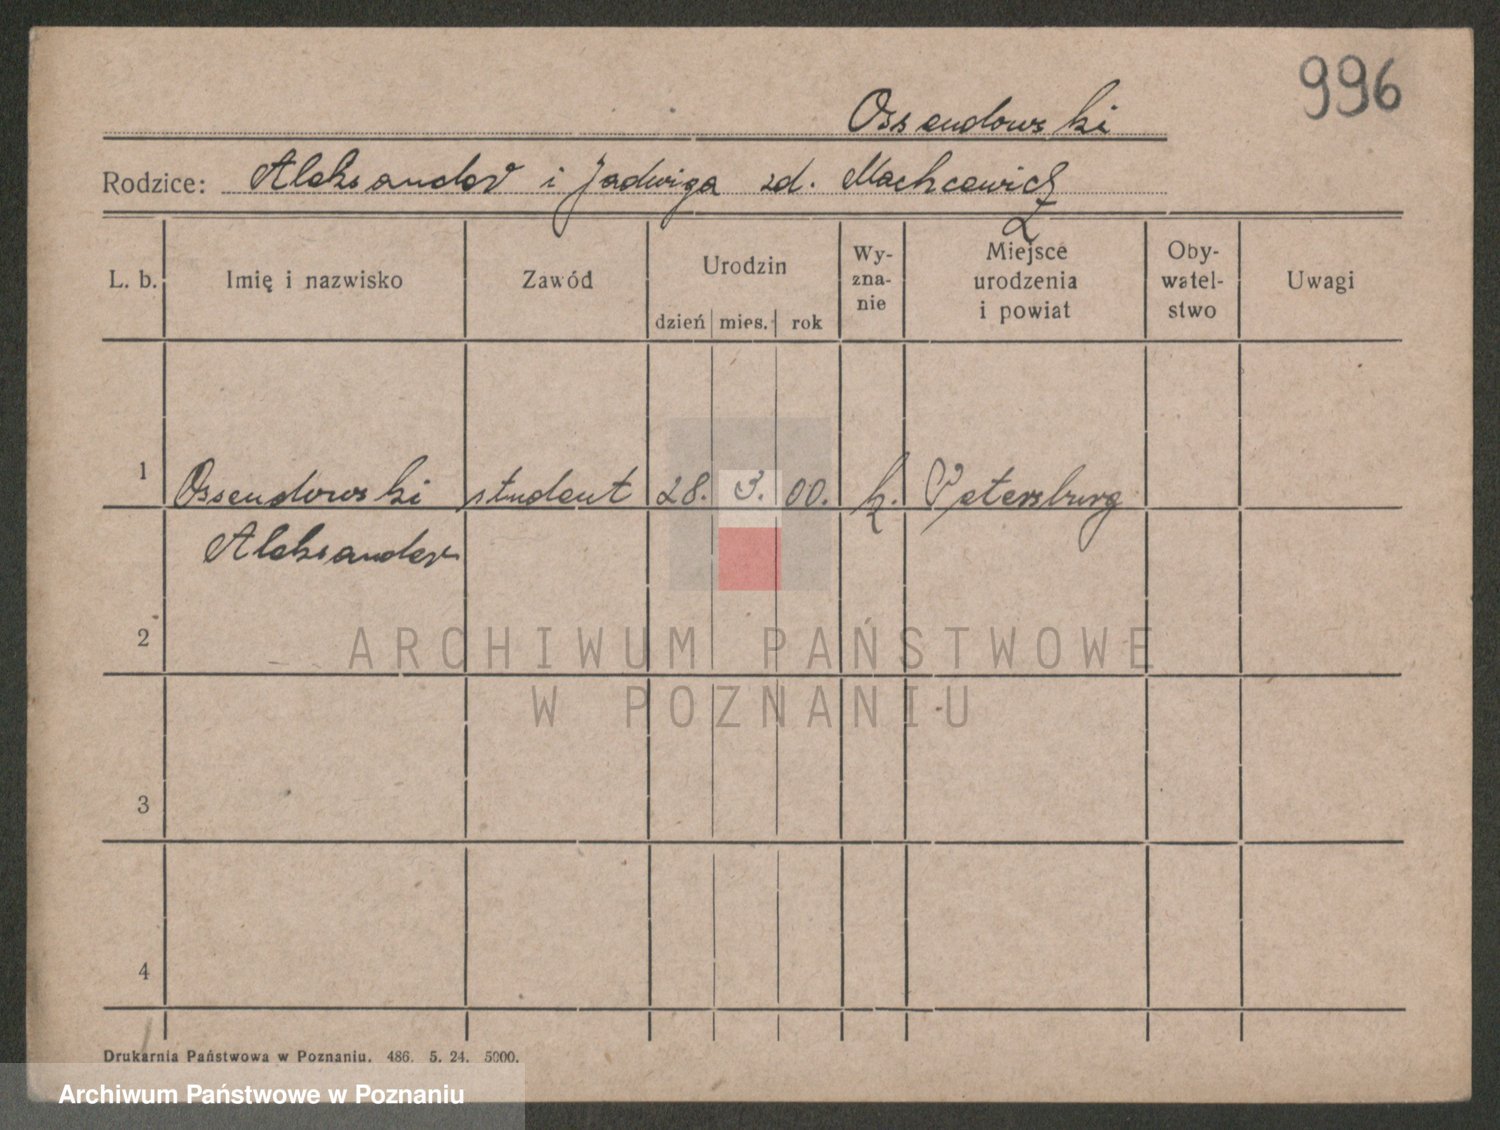 996
Ossendowski
Rodzice: Aleksander i Jadwiga zd. Machcewicz
L. b. Imię i nazwisko Zawód Urodzin dzień mies. rok Wy-zna-nie Miejsce urodzenia i powiat Oby-watel-stwo Uwagi
1 Ossendowski student 28. 3. 00. k. Petersburg
Aleksander
2
ARCHIWUM PAŃSTWOWE
W POZNANIU
3
4
Drukarnia Państwowa w Poznaniu. 486. 5. 24. 5000.
Archiwum Państwowe w Poznaniu